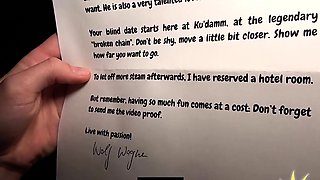 want. He is also a very talented
Your blind date starts here at Ku'damm, at the legendary
"broken chain". Don't be shy, move a little bit closer. Show me
how far you want to go.
To let off more steam afterwards, I have reserved a hotel room.
But remember, having so much fun comes at a cost. Don't forget
to send me the video proof.
Live with passion!
Wolf Wagner